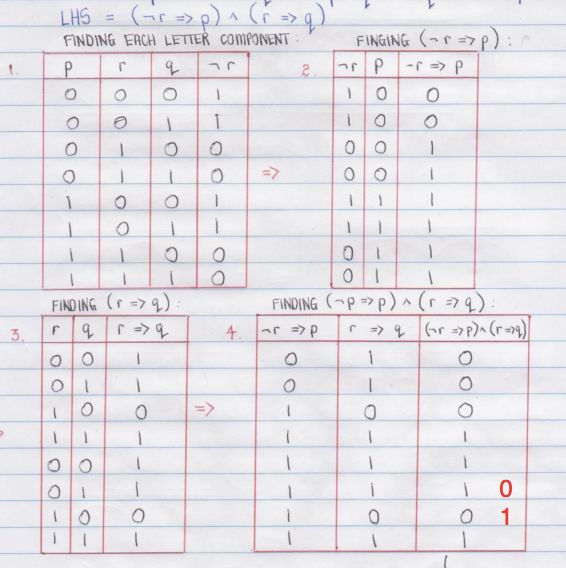 LHS = (¬r => p) ∧ (r => q)
FINDING EACH LETTER COMPONENT :
1.
p r q ¬r
0 0 0 1
0 0 1 1
0 1 0 0
0 1 1 0
1 0 0 1
1 0 1 1
1 1 0 0
1 1 1 0
=>
FINGING (¬r => p) :
2.
¬r p ¬r => p
1 0 0
1 0 0
0 0 1
0 0 1
1 1 1
1 1 1
0 1 1
0 1 1
FINDING (r => q) :
3.
r q r => q
0 0 1
0 1 1
1 0 0
1 1 1
0 0 1
0 1 1
1 0 0
1 1 1
=>
FINDING (¬p => p) ∧ (r => q) :
4.
¬r => p r => q (¬r => p) ∧ (r => q)
0 1 0
0 1 0
1 0 0
1 1 1
1 1 1
1 1 1 0
1 0 0 1
1 1 1